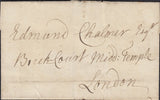 Edmund Chalmer Esqr
Brick Court Midd: Temple
London